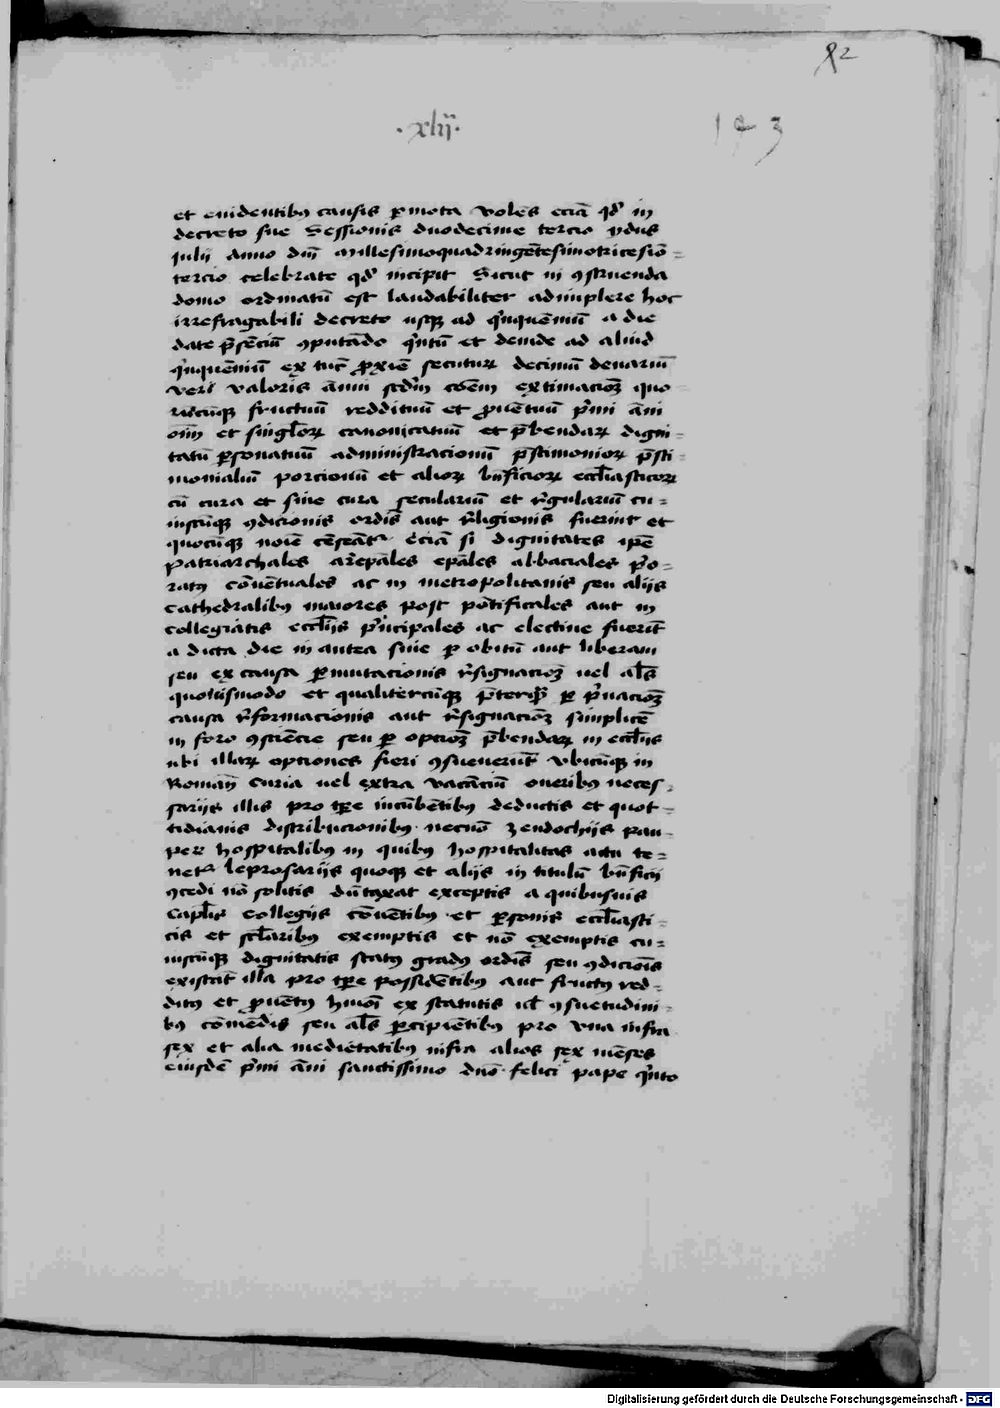 82
·xlij·
143
et euidentibus causis permota volens eciam quod in
decreto sue Sessionis duodecime tercio ydus
julij anno domini Millesimoquadringentesimotricesimo=
tercio celebrate quod incipit Sicut in construenda
domo ordinatum est laudabiliter adimplere hoc
irrefragabili decreto usque ad quinquennium a die
date presencium computando quintum et deinde ad aliud
quinquennium ex tunc proxime secuturum decimum denarium
veri valoris anni secundum communem extimacionem quo
rumcunque fructuum reddituum et prouentuum primi anni
omnium et singulorum canonicatuum et prebendarum digni=
tatum personatuum administracionum prestimoniorum presti
monialium porcionum et aliorum beneficiorum ecclesiasticorum
cum cura et sine cura secularium et regularium cu=
iuscunque condicionis ordinis aut religionis fuerint et
quocunque nomine censeantur Eciam si dignitates ipse
patriarchales archiepiscopales episcopales abbaciales prio=
ratus conuentuales ac in metropolitanis seu alijs
Cathedralibus maiores post pontificales aut in
collegiatis ecclesijs principales ac electiue fuerint
a dicta die in antea siue per obitum aut liberam
seu ex causa permutacionis resignacionem uel alias
quouismodo et qualitercunque preterquam per priuacionem
causa reformacionis aut resignacionem simplicem
in foro consciencie seu per opcionem prebendarum in ecclesijs
ubi illarum optiones fieri consueuerunt vbicunque in
Romana Curia uel extra vacancium oneribus neces=
sarijs illis pro tempore incumbentibus deductis et quot=
tidianis distribucionibus necnon zenodochijs pau=
perum hospitalibus in quibus hospitalitas actu te=
netur leprosarijs quoque et alijs in titulum beneficij
concedi non solitis duntaxat exceptis a quibusuis
Capitulis Collegijs conuentibus et personis ecclesiasti=
cis et secularibus exemptis et non exemptis cu=
iuscunque dignitatis status gradus ordinis seu condicionis
existant illa pro tempore possidentibus aut fructus red=
ditus et prouentus huiusmodi ex statutis uel consuetudini=
bus commendis seu alias percipientibus pro vna infra
sex et alia medietatibus infra alios sex menses
eiusdem primi anni sanctissimo domino felici pape quinto
Digitalisierung gefördert durch die Deutsche Forschungsgemeinschaft - DFG